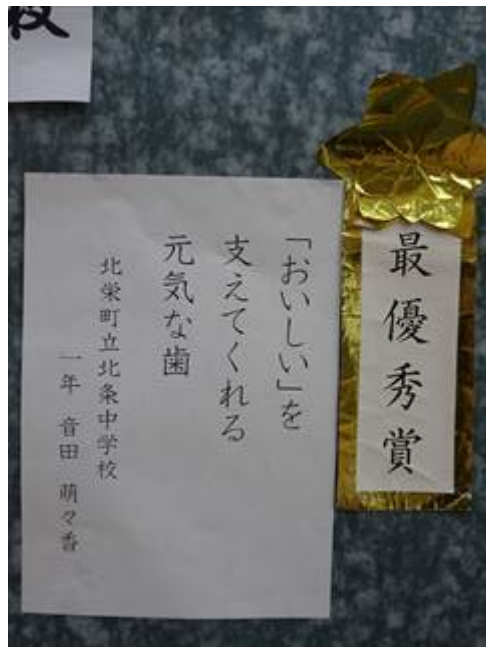 最優秀賞
「おいしい」を
支えてくれる
元気な歯
北栄町立北条中学校
一年 音田 萌々香